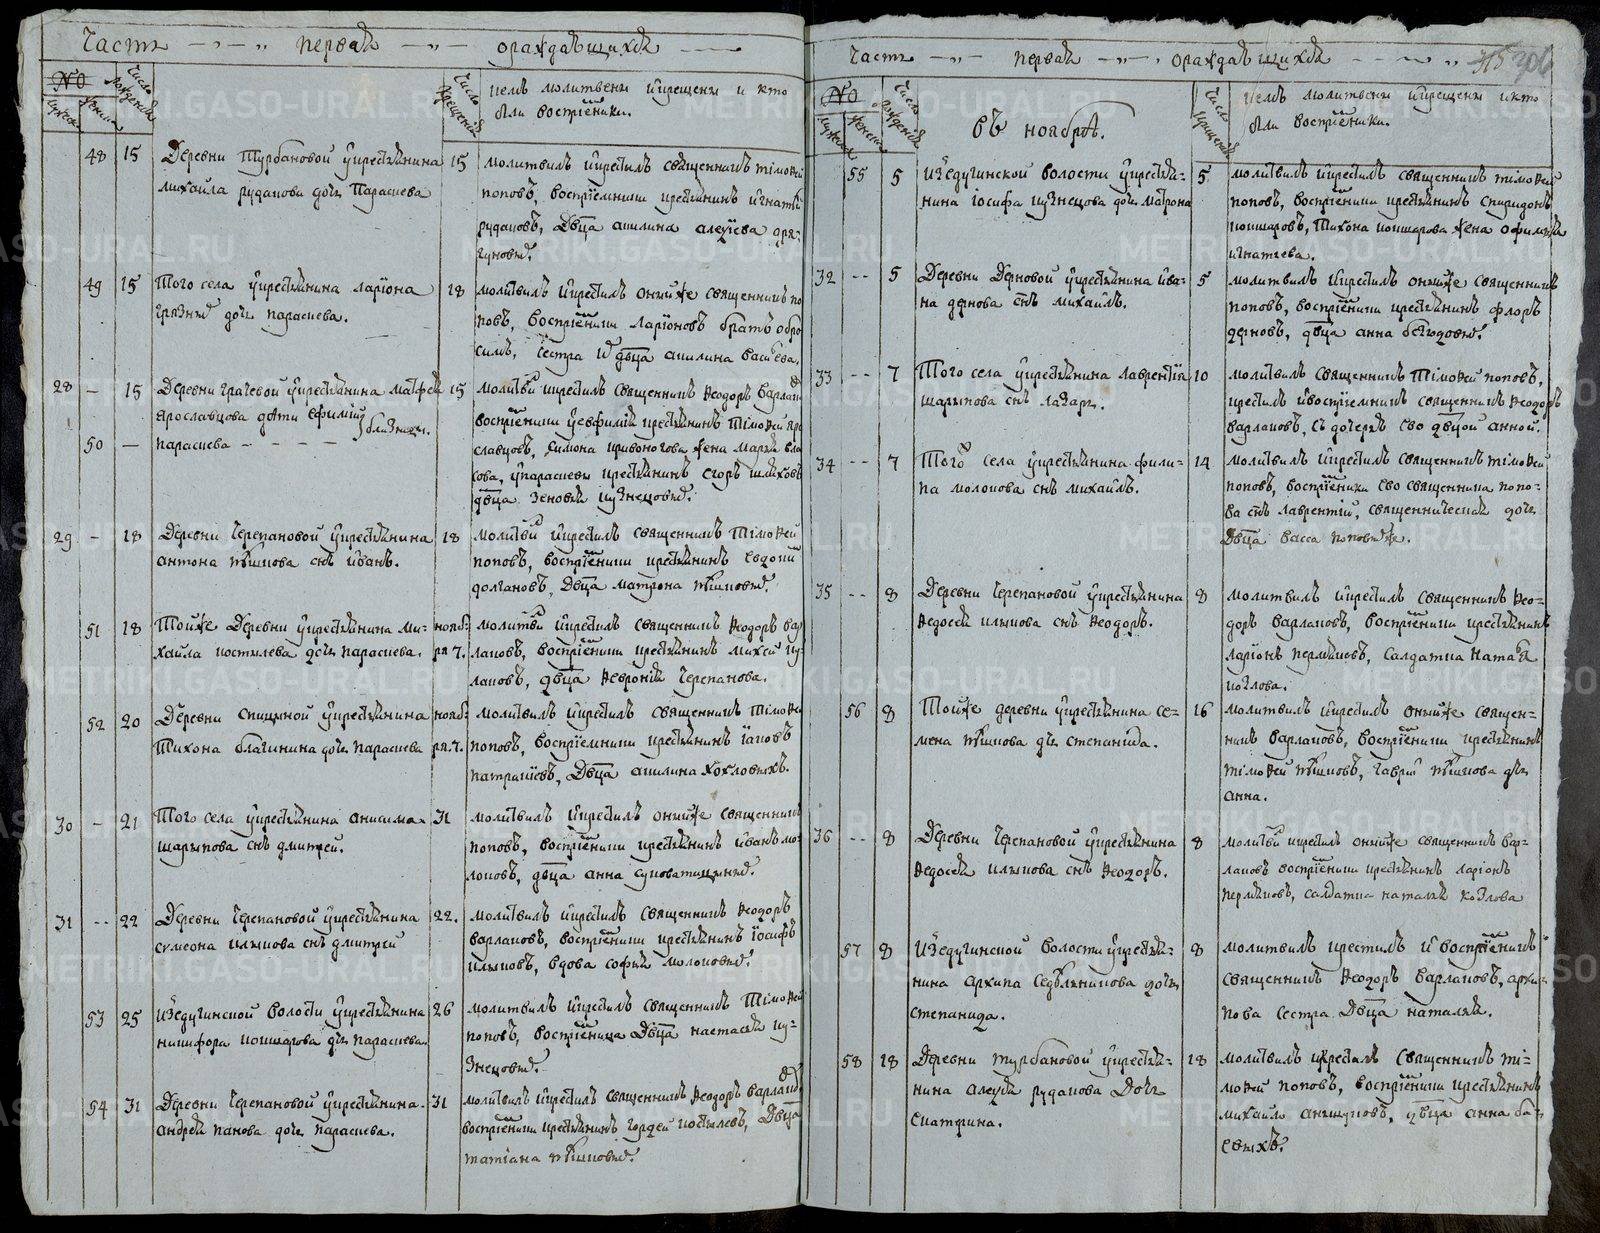 Часть первая ораждающихся
№
мужеска
женска
Число рождения
Число крещения
кемъ молитвены икрещены и кто
были восприемники.
48 15 Деревни Турбановой укрестьянина
михаила рудакова дочь Параскева
15 молитвилъ икрестилъ священникъ тімофей
поповъ, воспріемники крестьянинъ игнатій
рудаковъ, Двца акилина алеѯіева
49 15 Того села укрестьянина ларіона
грязныхъ дочь параскева.
18 молитвилъ икрестилъ оныйже священникъ по
повъ, воспріемники ларіоновъ братъ обро
симъ, сестра двца акилина васильева.
28 – 15 Деревни грачевой укрестьянина матфея
ярославцова дѣти ефимій
50 – параскева близнецы.
15 молитвилъ икрестилъ священникъ Ѳеодоръ варлаковъ
воспріемники уевфимія крестьянинъ Тімофей яро
славцовъ, симона кривоногова жена марья вла
сова, упараскевы крестьянинъ егоръ шляховъ
двца зеновья кузнецовыхъ.
29 – 18 Деревни черепановой укрестьянина
антона снъ иванъ.
18 молитвилъ икрестилъ священникъ Тімофей
поповъ, воспріемники крестьянинъ евдокимъ
долгановъ, Двца матрона
51 18 Тойже Деревни укрестьянина ми-
хаила костылева дочь параскева.
нояб-
ря 7. молитвилъ икрестилъ священникъ Ѳеодоръ вар
лаковъ, воспріемники крестьянинъ михей ку-
лаковъ, двца Ѳевронія черепанова.
52 20 Деревни спицыной укрестьянина
Тихона благинина дочь параскева
нояб-
ря 7. молитвилъ икрестилъ священникъ тімофей
поповъ, воспріемники крестьянинъ іаковъ
патракѣевъ, Двца акилина хохловыхъ.
30 – 21 Того села укрестьянина анисима
шарыпова снъ дмитрей.
31 молитвилъ икрестилъ оныйже священникъ
поповъ, воспріемники крестьянинъ иванъ мо-
локовъ, двца анна суковатицыныхъ.
31 -- 22 Деревни черепановой укрестьянина
сумеона илькова снъ дмитрій
22. молитвилъ икрестилъ священникъ Ѳеодоръ
варлаковъ, воспріемники крестьянинъ іосифъ
ильковъ, вдова софья молоковыхъ.
53 25 Изедугинской волости укрестьянина
никифора кокшарова дчь параскева.
26 молитвилъ икрестилъ священникъ Тімофей
поповъ, воспріемница Двца настасья ку-
знецовыхъ.
54 31 Деревни черепановой укрестьянина
андрея панова дочь параскева.
31 молитвилъ икрестилъ священникъ Ѳеодоръ варлаковъ
воспріемники крестьянинъ гордей костылевъ, Двца
татіана
Часть первая ораждающихся
№
мужеска
женска
Число рождения
въ ноябрѣ.
Число крещения
кемъ молитвены икрещены икто
были воспріемники.
55 5 Изедугинской волости укрестья-
нина іосифа кузнецова дочь матрона
5 молитвилъ икрестилъ священникъ тімофей
поповъ, воспріемники крестьянинъ спиридонъ
кокшаровъ, Тихона кокшарова жена офимья
игнатьева.
32 -- 5 Деревни Дерновой укрестьянина ива-
на дернова снъ михаилъ.
5 молитвилъ икрестилъ оныйже священникъ
поповъ, воспріемники крестьянинъ флоръ
дерновъ, двца анна
33 -- 7 Того села укрестьянина лаврентія
шарыпова снъ лазарь.
10 молитвилъ священникъ Тімофей поповъ,
крестилъ ивоспріемникъ священникъ Ѳеодоръ
варлаковъ, съ дочерью ево двцой анной.
34 -- 7 Того села укрестьянина фили-
па молокова снъ михаилъ.
14 молитвилъ икрестилъ священникъ тімофей
поповъ, воспріемники ево священника попо-
ва снъ лаврентій, священническая дочь
Двца васса поповыхъ.
35 -- 8 Деревни черепановой укрестьянина
Ѳедосея илькова снъ Ѳеодоръ.
8 молитвилъ икрестилъ священникъ Ѳео-
доръ варлаковъ, воспріемники крестьянинъ
ларіонъ пермяковъ, салдатка наталья
козлова.
56 8 Тойже деревни укрестьянина се-
мена дчь степанида.
16 молитвилъ икрестилъ оныйже священ-
никъ варлаковъ, воспріемники крестьянинъ
тімофей дчь
анна.
36 -- 8 Деревни черепановой укрестьянина
Ѳедосея илькова снъ Ѳеодоръ.
8 молитвилъ икрестилъ оныйже священникъ вар-
лаковъ воспріемники крестьянинъ ларіонъ
пермяковъ, салдатка наталья козлова
57 8 Изедугинской волости укрестья-
нина архипа седельникова дочь
степанида.
8 молитвилъ крестилъ и воспріемникъ
священникъ Ѳеодоръ варлаковъ, архи-
пова сестра Двца наталья.
58 18 Деревни турбановой укрестья-
нина алеѯея рудакова Дочь
екатрина.
18 молитвилъ икрестилъ священникъ ти-
мофей поповъ, воспріемники крестьянинъ
михайло двца анна